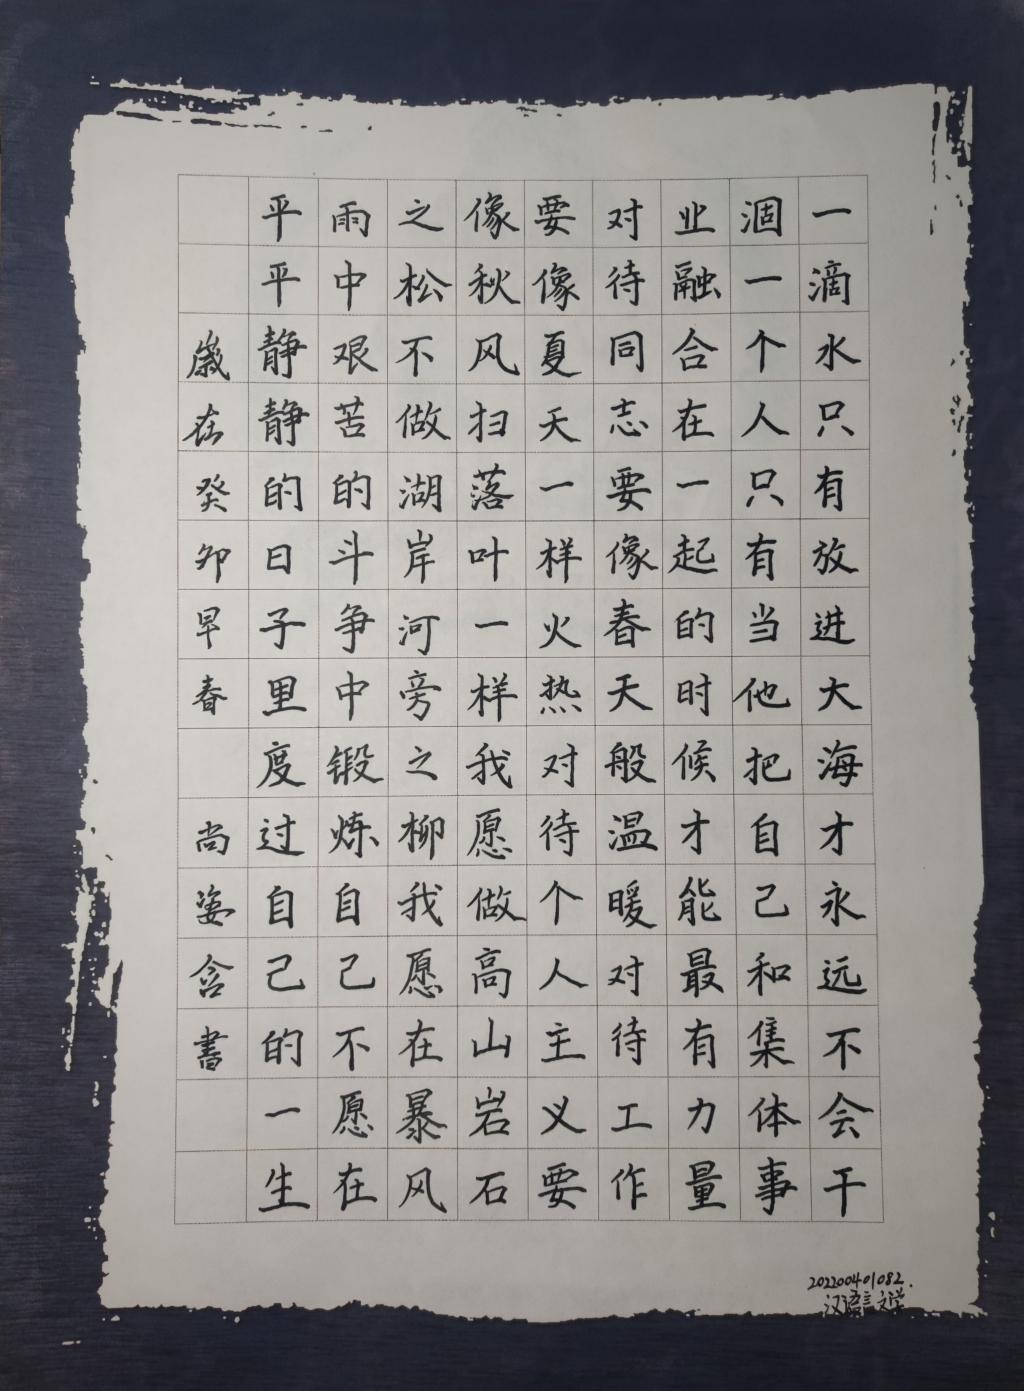 一滴水只有放进大海才永远不会干
涸一个人只有当他把自己和集体事
业融合在一起的时候才能最有力量
对待同志要像春天般温暖对待工作
要像夏天一样火热对待个人主义要
像秋风扫落叶一样我愿做高山岩石
之松不做湖岸河旁之柳我愿在暴风
雨中艰苦的斗争中锻炼自己不愿在
平平静静的日子里度过自己的一生
歲在癸卯早春 尚姿含書
202200401082.
汉语言文学